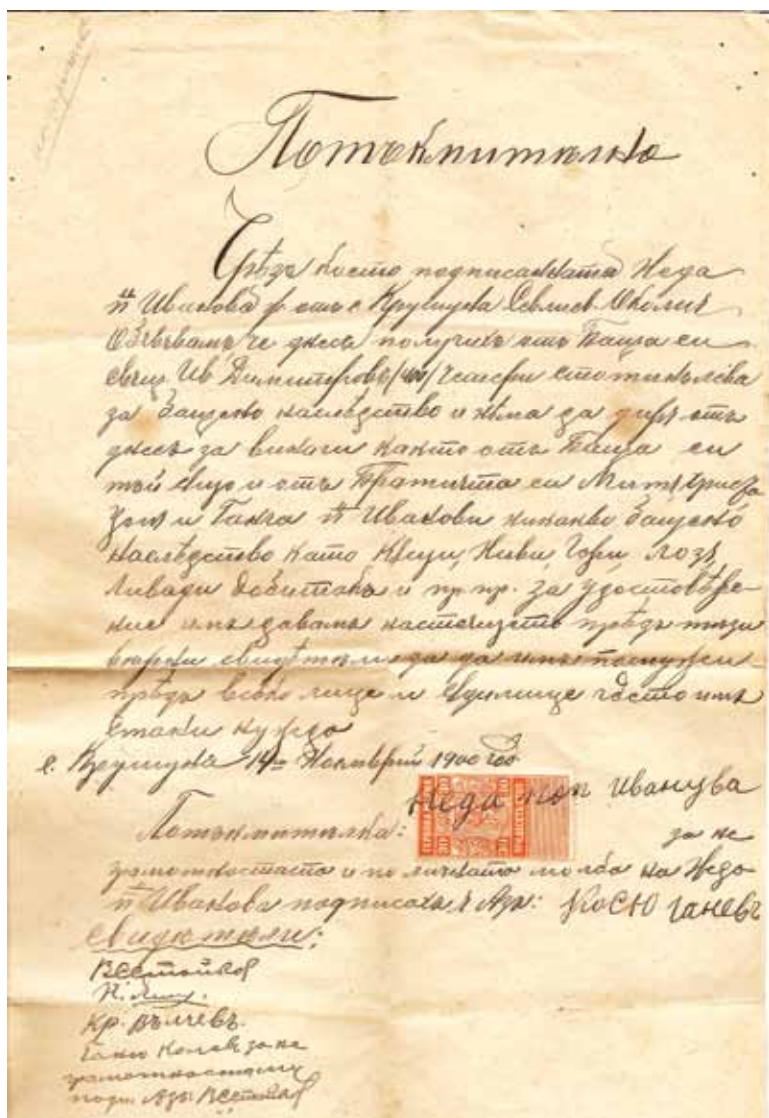 Потъкмителна
Чрѣзъ която подписаната Неда
п. Иванова ф отъ с. Крушуна Севлиев. Околия
Обѣвѣвамъ, че днесъ получихъ отъ Баща си
свещ. Ив Димитровъ /400/ Четери стотинъ лѣва
за Бащено наслѣдство и нѣма да диря отъ
днесъ за винаги както отъ Баща си
тъй също и отъ Братията си
и Ганча п. Иванови никакво бащено
наслѣдство като Кѫщи, Ниви, Гори, лозя,
ливади добитакъ и пр. пр. за удостовѣре-
ние имъ давамъ настоящето прѣдъ тези
свидѣтели да да имъ послужи
прѣдъ всяко лице и сѫдилище гдѣто имъ
стани нужда
с. Крушуна 14 Ноемврий 1900 год
Неда поп Иванува
Потъкмителка:
за не
грамотностьта и по личната молба на Неда
п. Иванова подписахъ я Азъ: Косю Ганевъ
свидѣтели:
В Стойков
Кр. Вълчевъ.
Ганю Колев за не
грамотностьта му
подп. Азъ В Стойков